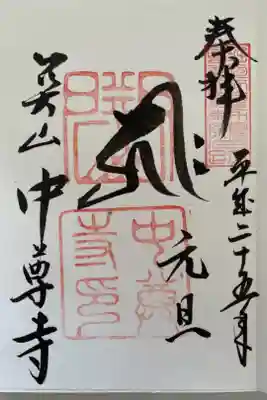 奉拝
平成二十五年
元旦
关山 中尊寺
中尊
寺印